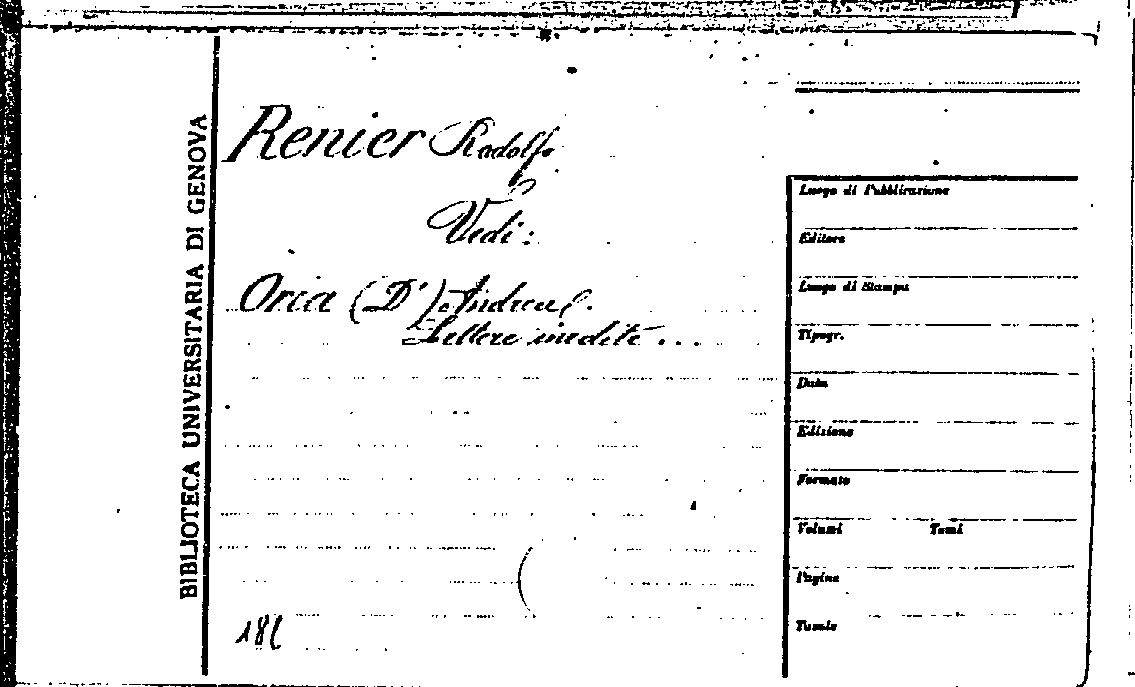 BIBLIOTECA UNIVERSITARIA DI GENOVA
Renier Rodolfo
Vedi:
Oria (D') Andrea
Lettere inedite ...
Luogo di Pubblicazione
Editore
Luogo di Stampa
Tipogr.
Data
Edizione
Formato
Volumi Tomi
Pagine
Tavole